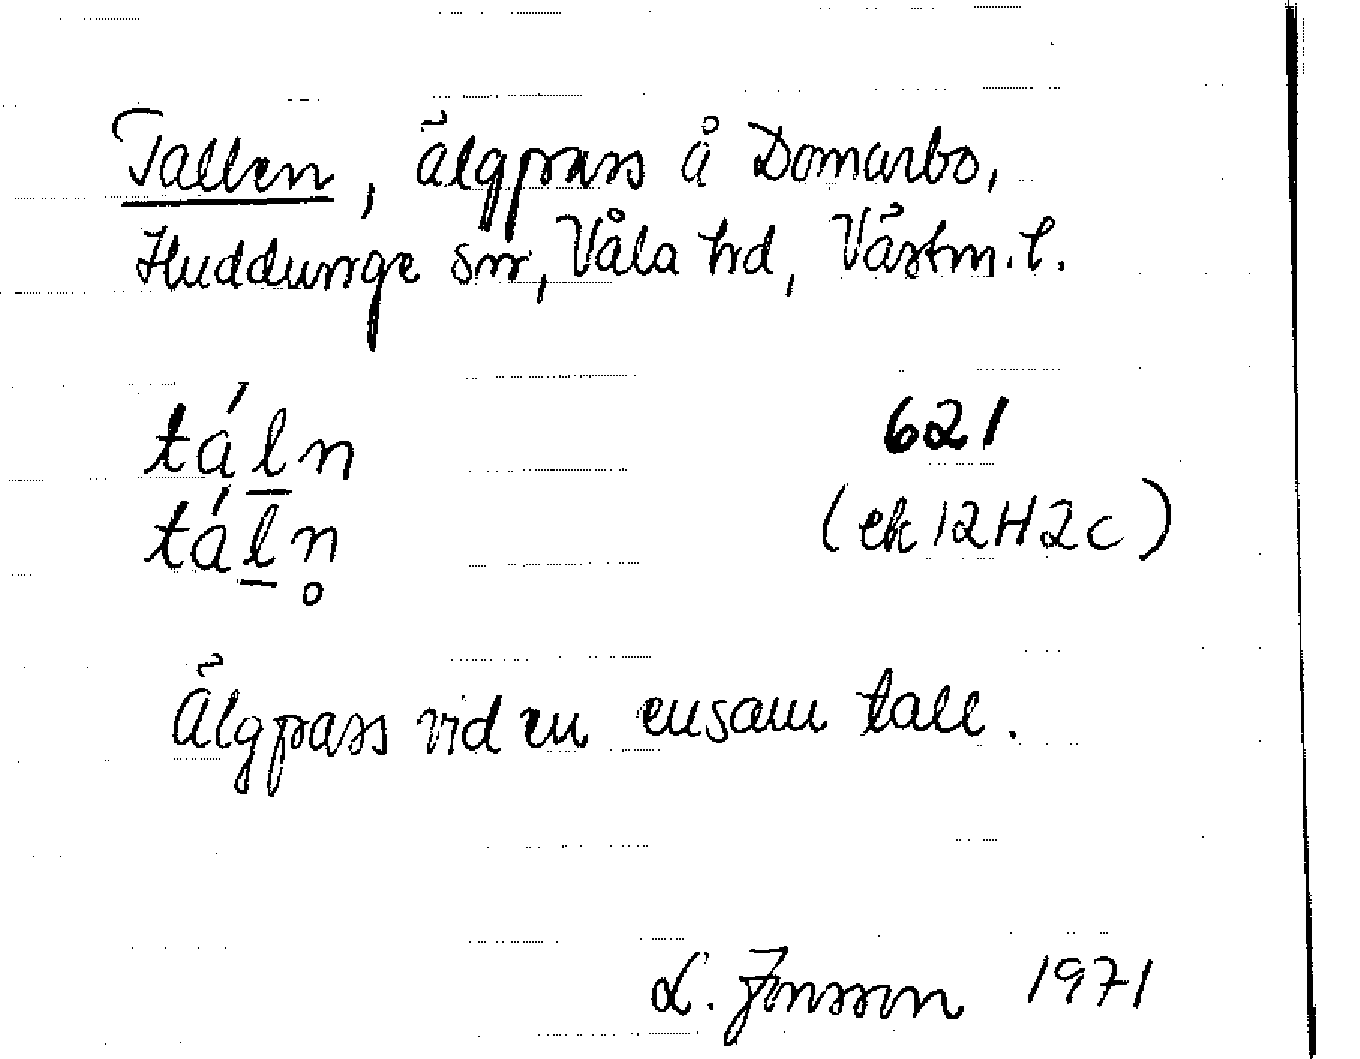 Tallen, älgpass å Domarbo,
Huddunge sn, Våla hd, Västm. l.
tál̲n
621
tál̲n̥
(ek 12H2c)
Älgpass vid en ensam tall.
L. Jonsson 1971